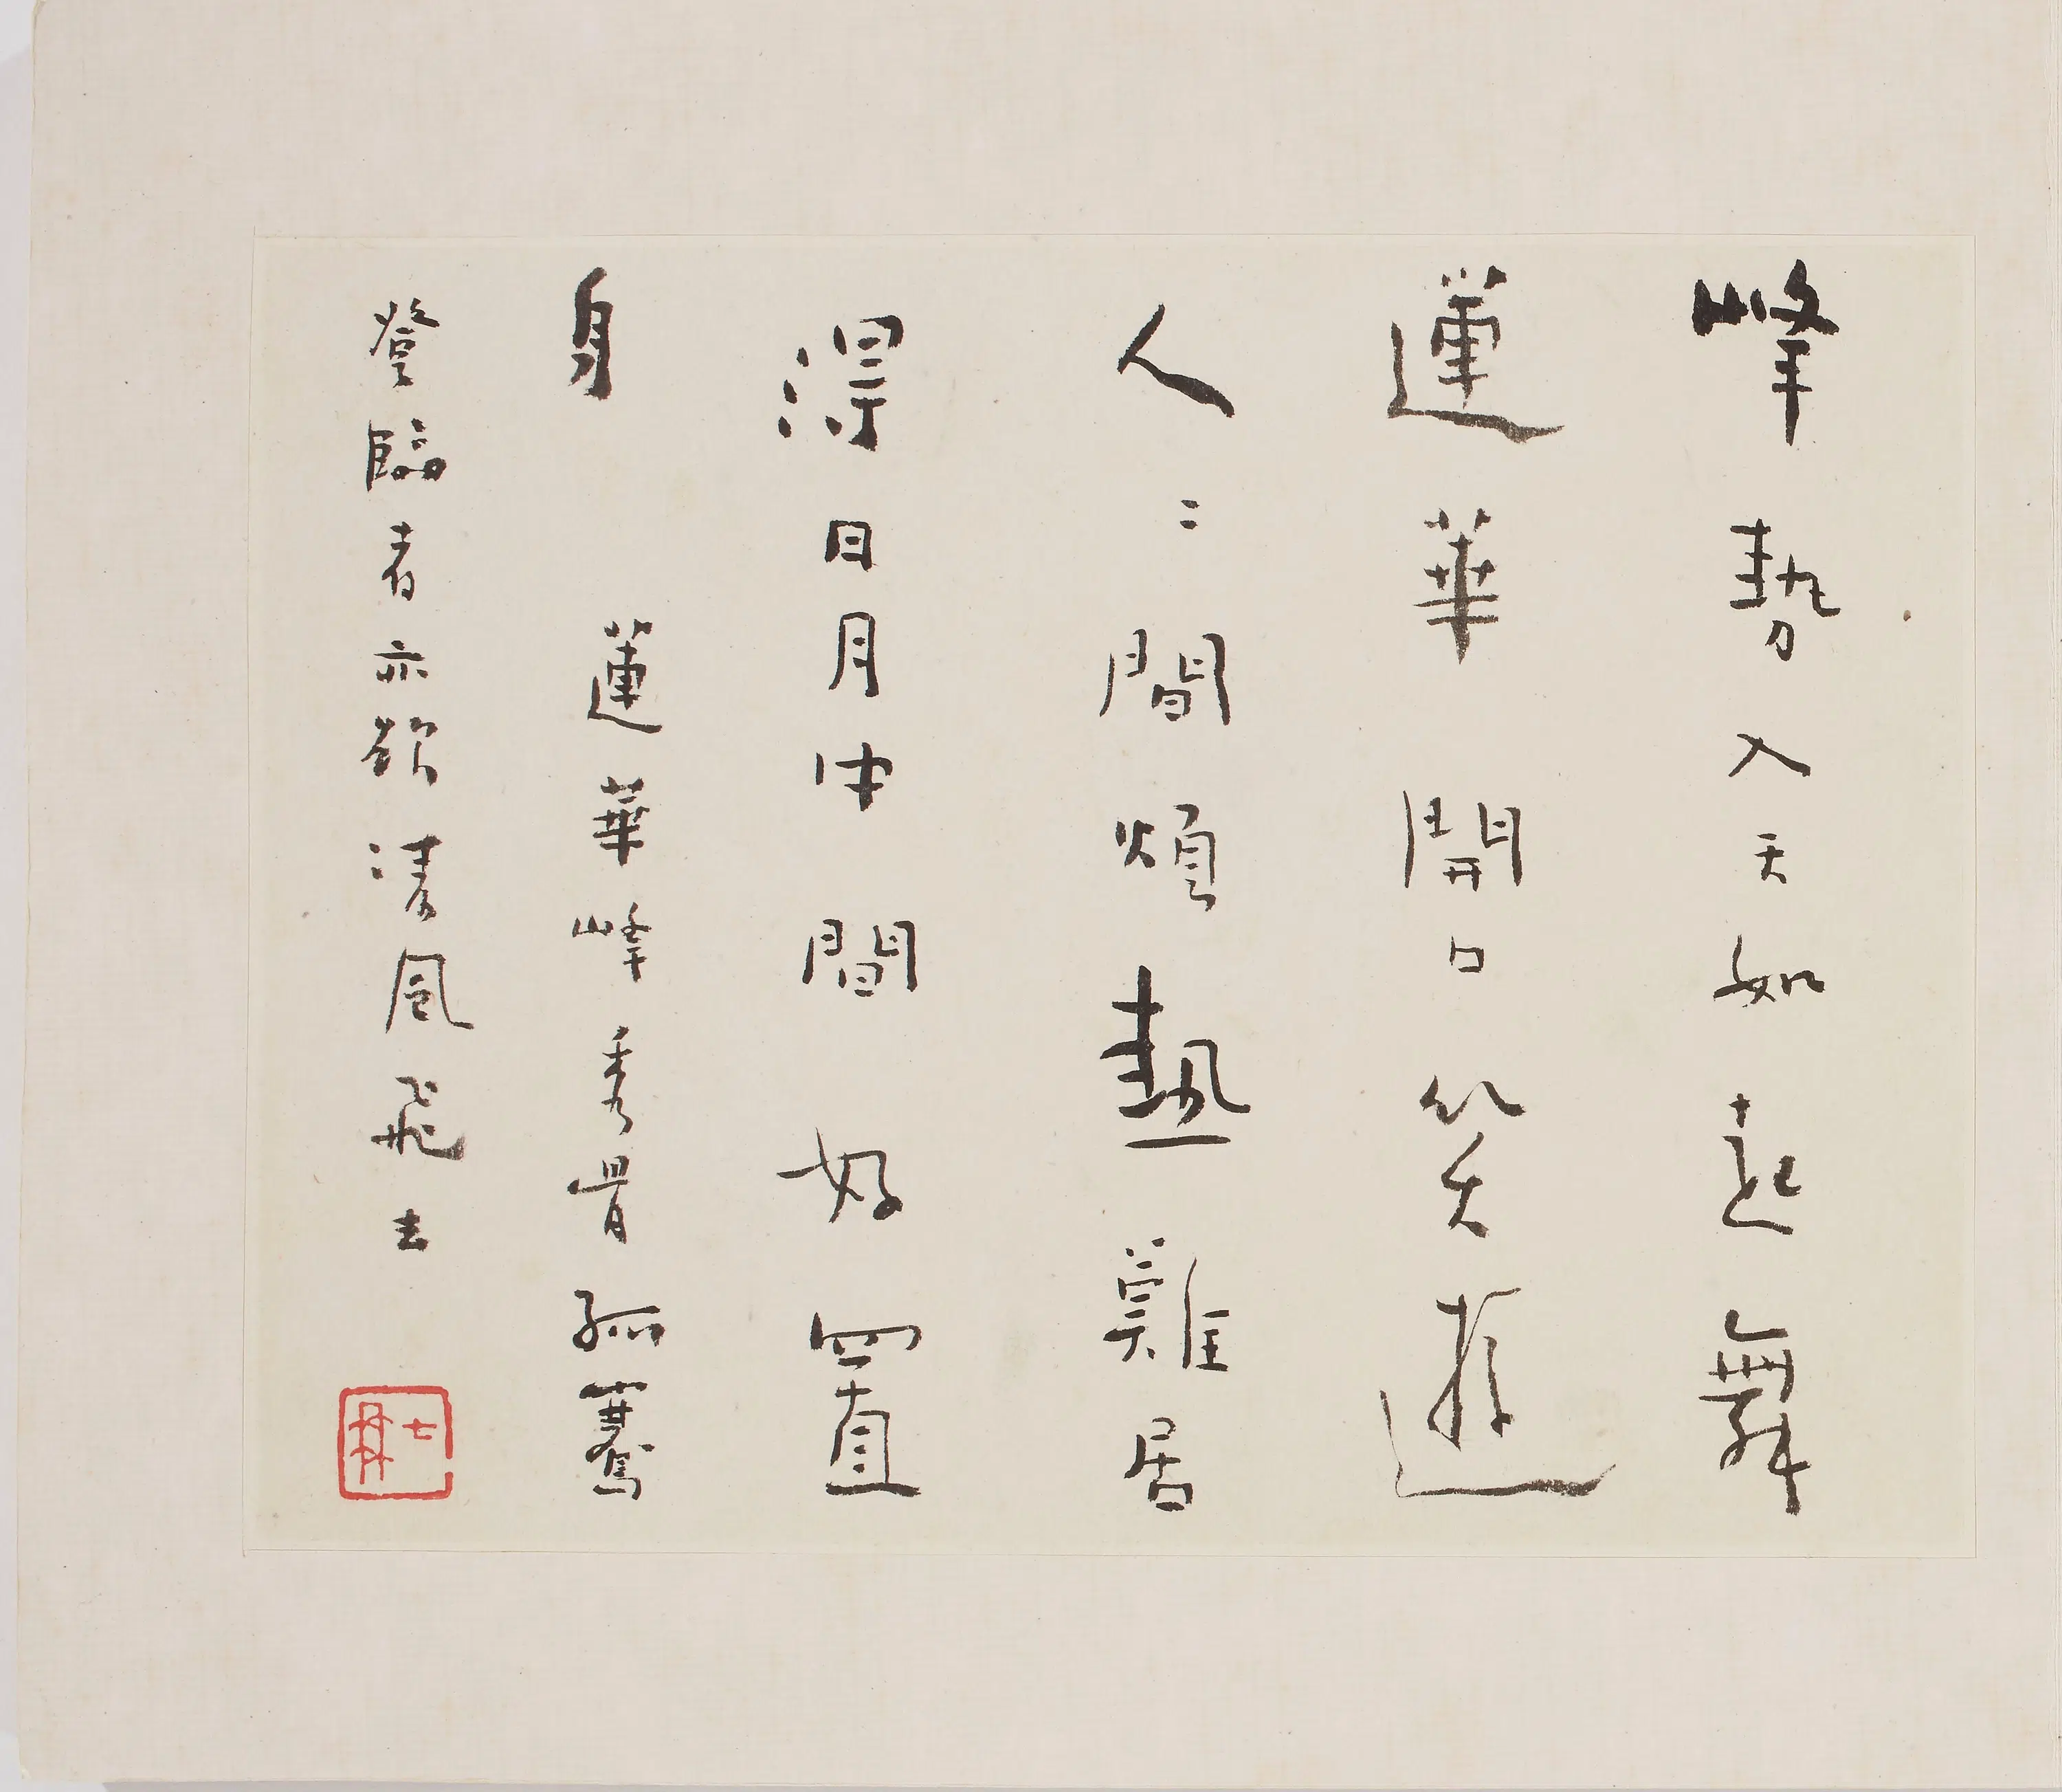 峰勢入天如起舞
蓮華開口笑遊
人〻間煩熱難居
得日月中間好置
身
蓮華峰秀骨孤騫
登臨者亦欲淩風飛去